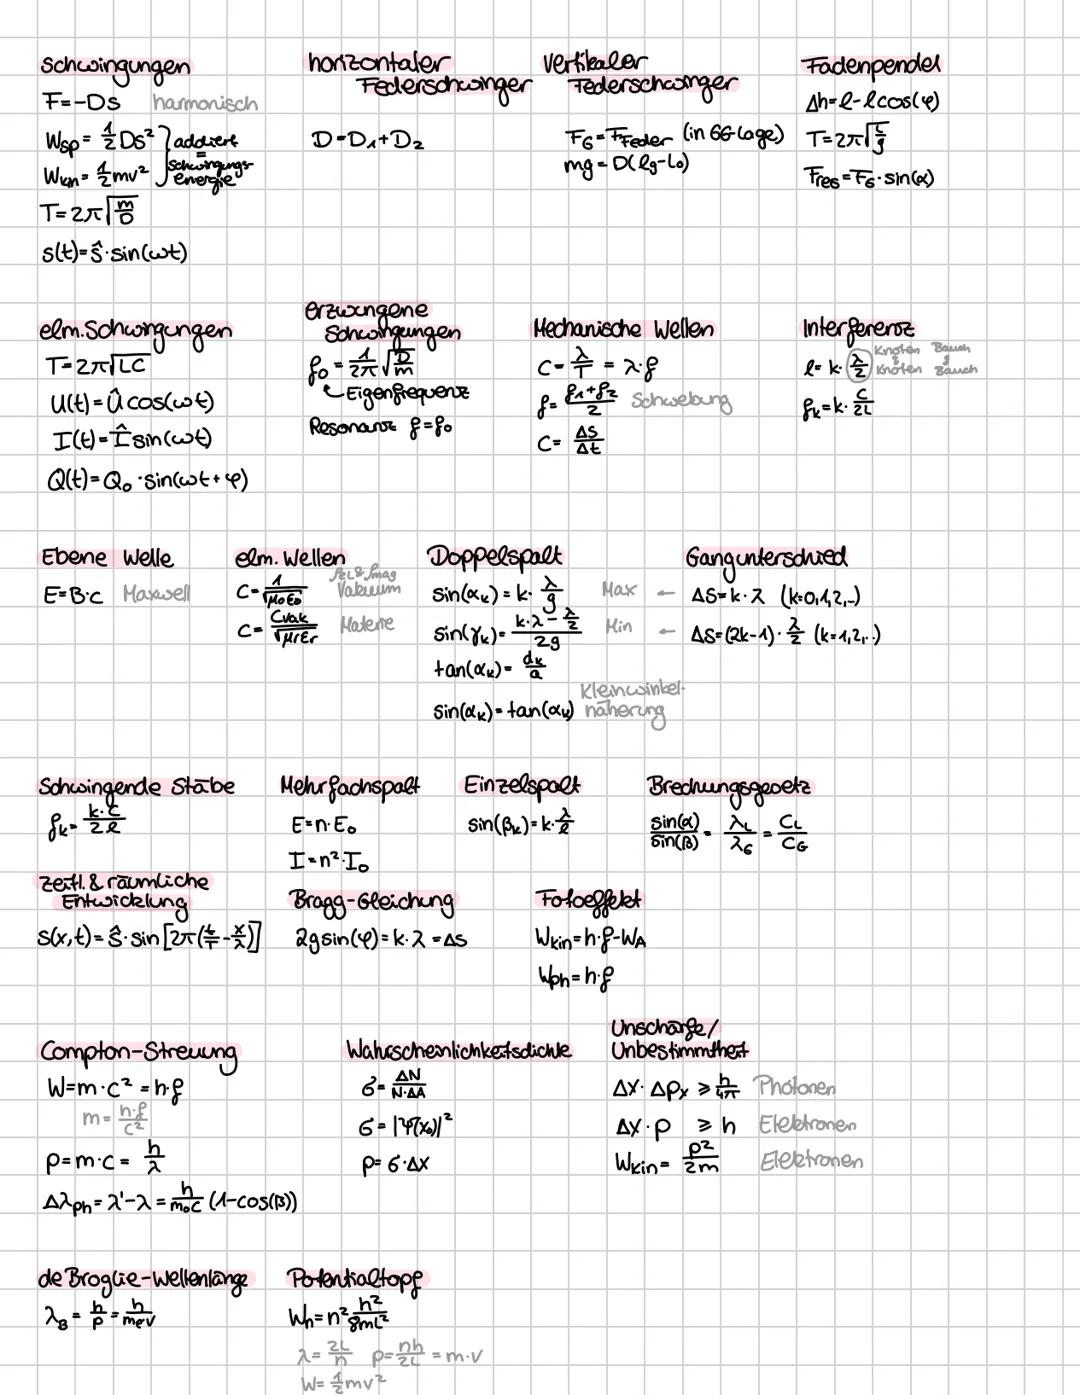 Schwingungen
F=-Ds harmonisch
Wsp = 1/2 Ds² } addiert
Wkin = 1/2 mv² } = Schwingungsenergie
T = 2π√(m/D)
s(t) = ŝ · sin(ωt)
horizontaler
Federschwinger
D = D₁ + D₂
Vertikaler
Federschwinger
F_G = F_Feder (in GG Lage)
mg = D(lg - L₀)
Fadenpendel
Δh = l - l cos(φ)
T = 2π√(L/g)
Fres = F_G · sin(α)
elm. Schwingungen
T = 2π√LC
U(t) = Û cos(ωt)
I(t) = Î sin(ωt)
Q(t) = Q₀ · sin(ωt + φ)
erzwungene
Schwingungen
f₀ = 1/2π √(D/m)
Eigenfrequenz
Resonanz f = f₀
Mechanische Wellen
c = λ/T = λ · f
f = (f₁+f₂)/2 Schwebung
c = Δs/Δt
Interferenz
l = k · λ/2 Knoten & Knoten Bauch & Bauch
f_k = k · c/2L
Ebene Welle
E = B · c Maxwell
elm. Wellen
fel & fmag
c = 1/√(μ₀ε₀) Vakuum
c = cvak/√(μrεr) Materie
Doppelspalt
sin(α_k) = k · λ/g Max
sin(γ_k) = (k·λ - λ/2)/2g Min
tan(α_k) = d_k/a
sin(α_k) = tan(α_k) Kleinwinkel-
näherung
Gangunterschied
← Δs = k · λ (k=0,1,2,..)
← Δs = (2k-1) · λ/2 (k=1,2,..)
Schwingende Stäbe
f_k = k·c/2l
Mehrfachspalt
E = n · E₀
I = n² · I₀
Einzelspalt
sin(β_k) = k · λ/l
Brechungsgesetz
sin(α)/sin(β) = λ_L/λ_G = c_L/c_G
zeitl. & räumliche
Entwicklung
s(x,t) = ŝ · sin[2π(t/T - x/λ)]
Bragg-Gleichung
2g sin(φ) = k · λ = Δs
Fotoeffekt
Wkin = h · f - W_A
Wph = h · f
Compton-Streuung
W = m · c² = h · f
m = h·f/c²
p = m · c = h/λ
Δλph = λ' - λ = h/m₀c (1 - cos(β))
Wahrscheinlichkeitsdichte
σ = ΔN/N·ΔA
σ = |Ψ(x₀)|²
p = σ · Δx
Unschärfe/
Unbestimmtheit
Δx · Δpx ≥ h/4π Photonen
Δx · p ≥ h Elektronen
Wkin = p²/2m Elektronen
de Broglie-Wellenlänge
λ_B = h/p = h/mev
Potentialtopf
Wn = n² h²/8mL²
λ = 2L/n p = nh/2L = m · v
W = 1/2 mv²